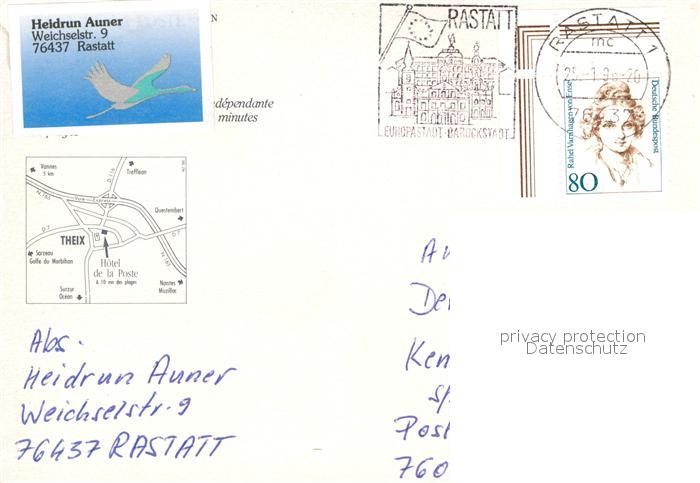 Heidrun Auner
Weichselstr. 9
76437 Rastatt
N
dépendante
minutes
RASTATT
EUROPASTADT-BAROCKSTADT
RASTATT 1
mc
Deutsche Bundespost
Rahel Varnhagen von Ense
80
Vannes
5 km
D. 116
Treffléan
N. 165
Voie Express
Questembert
D.7
THEIX
D.7
Sarzeau
Golfe du Morbihan
Hôtel
de la Poste
à 10 mn des plages
N. 165
Nantes
Muzillac
Surzur
Océan
Abs.
Heidrun Auner
Weichselstr. 9
76437 RASTATT
De
Ken
Post
760
privacy protection
Datenschutz